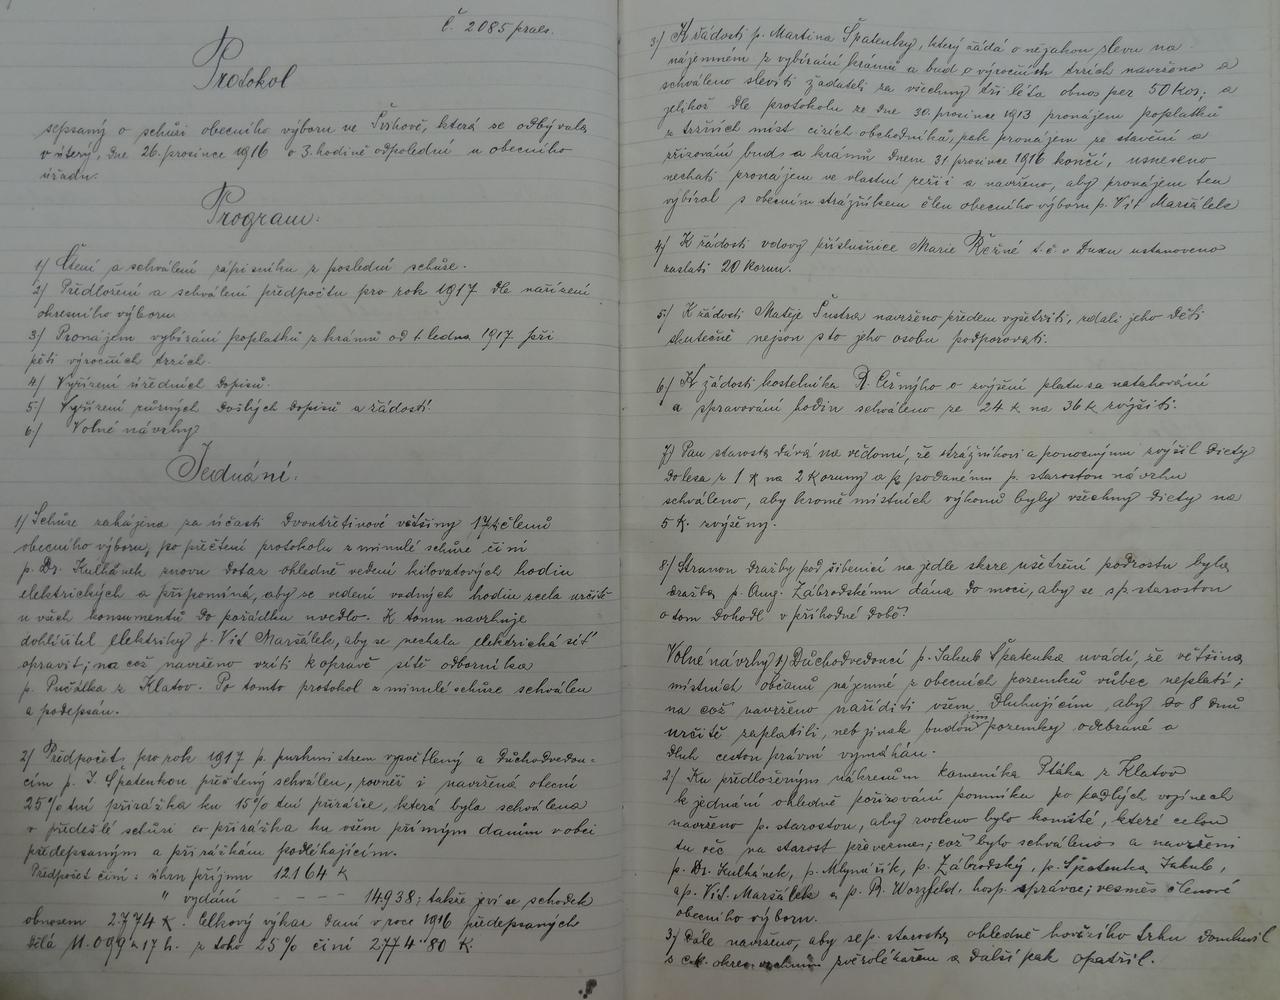 č. 2085 praes.
Protokol
sepsaný o schůzi obecního výboru ve Švihově, která se odbývala
v úterý, dne 26. prosince 1916 o 3. hodině odpolední u obecního
úřadu.
Program:
1) Čtení a schválení zápisníku z poslední schůze.
2) Předložení a schválení předpočtu pro rok 1917 dle nařízení
okresního výboru
3) Pronájem vybírání poplatků z krámů od 1. ledna 1917 při
pěti výročních trzích.
4) Vyřízení úředních dopisů.
5) Vyřízení různých došlých dopisů a žádostí.
6) Volné návrhy
Jednání:
1) Schůze zahájena za účasti dvoutřetinové většiny 17ti členů
obecního výboru, po přečtení protokolu z minulé schůze činí
p. Dr. Kulhánek znovu dotaz ohledně vedení kilovatových hodin
elektrických a připomíná, aby se vedení vodných hodin zcela určitě
u všech konsumentů do pořádku uvedlo. K tomu navrhuje
dohlížitel elektriky p. Vít Maršálek, aby se nechala elektrická síť
opravit; na což navrženo vzíti k opravě sítě odborníka
p. Pučálka z Klatov. Po tomto protokol z minulé schůze schválen
a podepsán.
2) Předpočet pro rok 1917 p. purkmistrem vysvětlený a důchodvedou-
cím p. J. Špatenkou přečtený schválen, rovněž i navržená obecní
25% tní přirážka ku 15% tní přirážce, která byla schválena
v předešlé schůzi co přirážka ku všem přímým daním v obci
předepsaným a přirážkám podléhajícím.
Předpočet činí: úhrn příjmu 12.164 K
" vydání - - - 14.938; takže jeví se schodek
obnosem 2.774 K. Celkový výkaz daní v roce 1916 předepsaných
dělá 11.099 K 17 h. z toho 25% činí 2774"80 K
3) K žádosti p. Martina Špatenky, který žádá o nějakou slevu na
nájemném z vybírání krámů a bud o výročních trzích navrženo a
schváleno sleviti žadateli za všechny tři léta obnos per 50 Kor; a
jelikož dle protokolu ze dne 30. prosince 1913 pronájem poplatků
z tržních míst cizích obchodníků, pak pronájem ze stavění a
zřizování bud a krámů dnem 31 prosince 1916 končí, usneseno
nechati pronájem ve vlastní režii a navrženo, aby pronájem ten
vybíral s obecním strážníkem člen obecního výboru p. Vít Maršálek
4) K žádosti vdovy příslušnice Marie Řežné t. č. v Duxu ustanoveno
zaslati 20 korun.
5) K žádosti Matěje Šustra navrženo předem vyšetřiti, zdali jeho děti
skutečně nejsou s to jeho osobu podporovati.
6) K žádosti kostelníka R. Černýho o zvýšení platu za natahování
a spravování hodin schváleno ze 24 K na 36 K zvýšiti.
7) Pan starosta dává na vědomí, že strážníkovi a ponocnými zvýšil diety
do lesa z 1 K na 2 Koruny a k podanému p. starostou návrhu
schváleno, aby kromě místních výkonů byly všechny diety na
5 K. zvýšeny.
8) Stranou dražby pod šibenicí na jedle skrze ušetření podrostu byla
dražba p. Aug. Zábrodskému dána do moci, aby se s p. starostou
o tom dohodl v příhodné době.
Volné návrhy 1) Důchodvedoucí p. Jakub Špatenka uvádí, že většina
místních občanů nájemné z obecních pozemků vůbec neplatí;
na což navrženo naříditi všem dluhujícím, aby do 8 dnů
určitě zaplatili, neb jinak budou jim pozemky odebrané a
dluh cestou právní vymáhán.
2) Ku předloženým nákresům kameníka Ptáka z Klatov
k jednání ohledně pořizování pomníku po padlých vojínech
navrženo p. starostou, aby zvoleno bylo komité, které celou
tu věc na starost převezme; což bylo schváleno a navrženi
p. Dr. Kulhánek, p. Mlynářík, p. Zábrodský, p. Špatenka Jakub,
a p. Vít Maršálek a p. R. Worzfeld, hosp. správce; vesměs členové
obecního výboru.
3) Dále navrženo, aby se p. starosta ohledně hovězího trhu domluvil
s c. k. okres. zvěrolékařem a další pak opatřil.